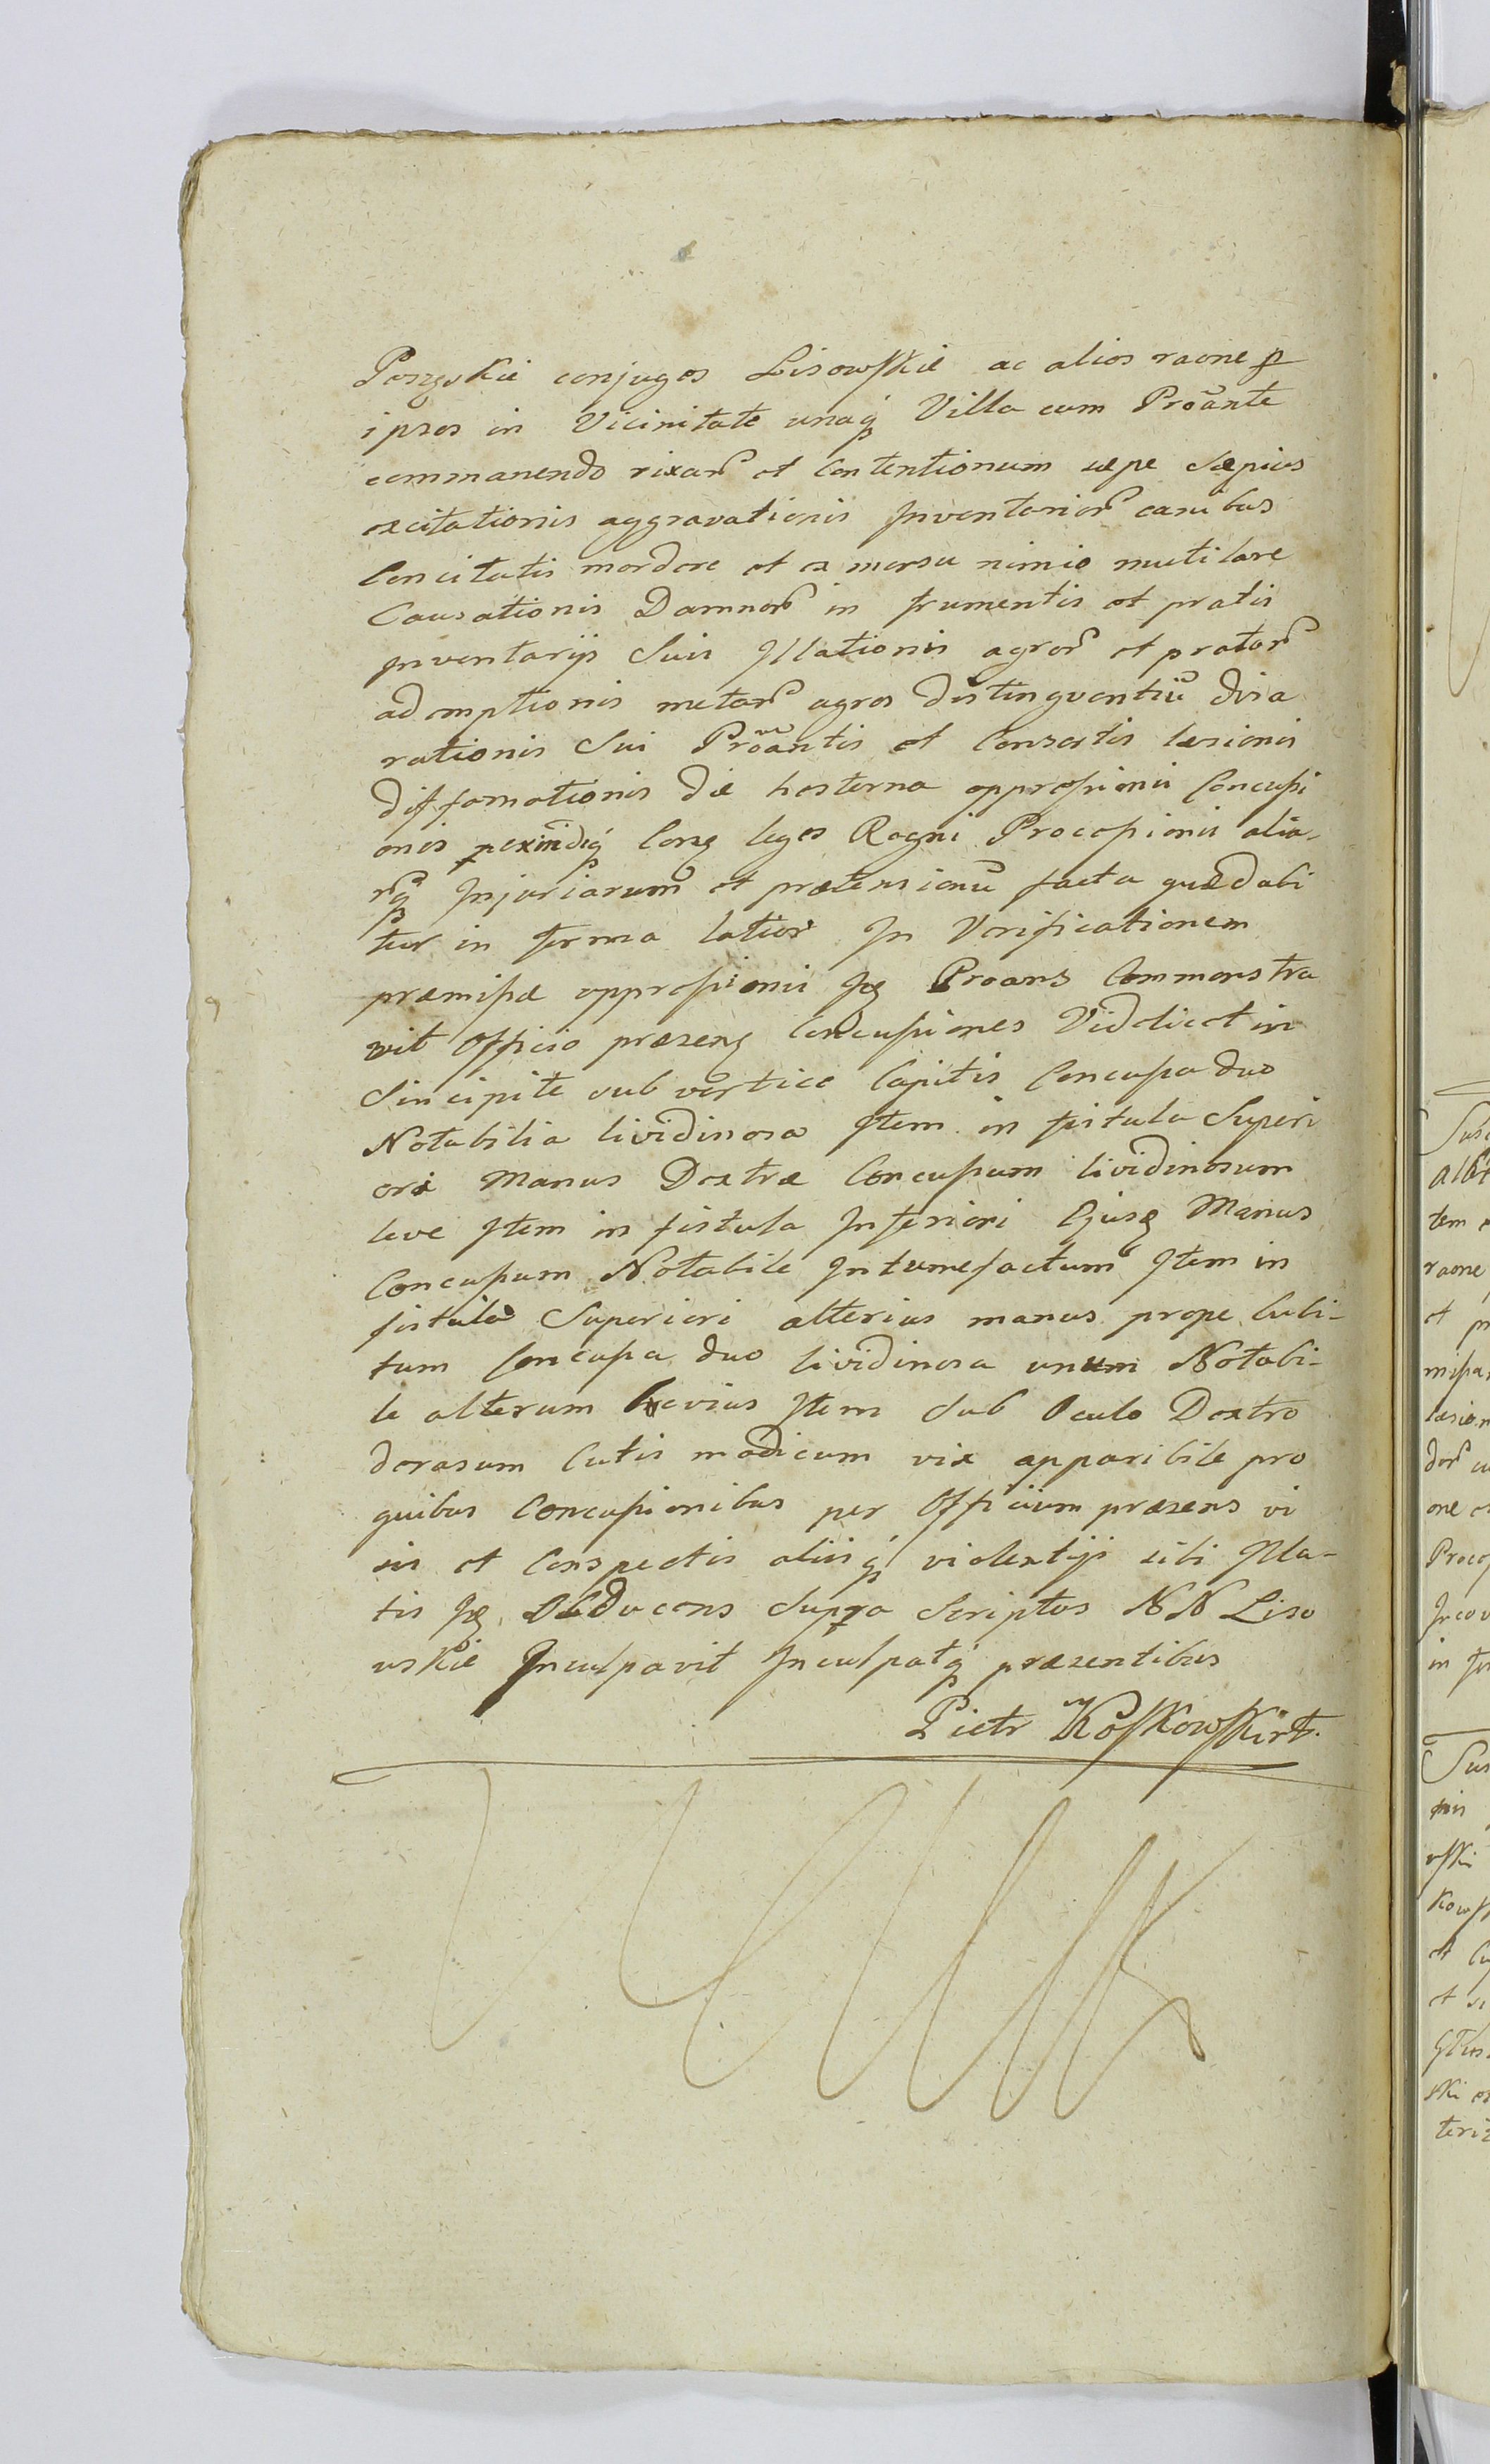 conjuges Lisowskie ac alios raone p
ipsos in Vicinitate unaq Villa cum Proãnte
commanendo rixar et Contentionum sæpe Sæpius
excitationis aggravationis Inventarior canibus
Concitatis mordere et ex morsu nimio mutilare
Causationis Damnor in frumentis et pratis
Inventarijs Suis Illationis agror et prator
ademptionis metar agros distingventiũ dis a
rationis Sui Proãntis et Consortis læsionis
diffamationis die hesterna oppressionis Concussi
onis Conq leges Regni Processionis alia-
rq Injuriarum et prætensionũ facta quæ dabi
tur in forma latiori In Verificationem
præmissæ oppressionis Iq Proans Commonstra
vit Officio præsenq Concussiones Videlicet in
Sincipite sub vertice Capitis Concussa duo
Notabilia lividinosa Item in fistula Superi
ori Manus Dextræ Concussum lividinosum
leve Item in fistula Inferiori Ejusq Manus
Concussum Notabile Intumefactum Item in
fistula Superiori alterius manus prope Cubi-
tum Concussa duo lividinosa unum Notabi-
le alterum levius Item Sub Oculo Dextro
derasum Cutis modicum vix apparibile pro
quibus Concussionibus per Officium præsens vi
sis et Conspectis aliisq violentijs sibi Illa-
tis Iq Obducens Supra Scriptos NN Liso
wskie Inculpavit Inculpatq præsentibus
Piotr Koskowski